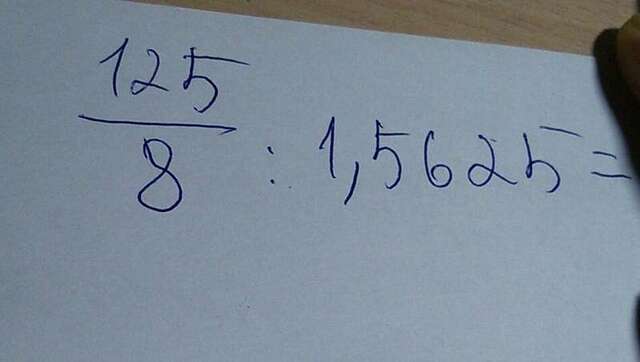 125
8 : 1,5625=